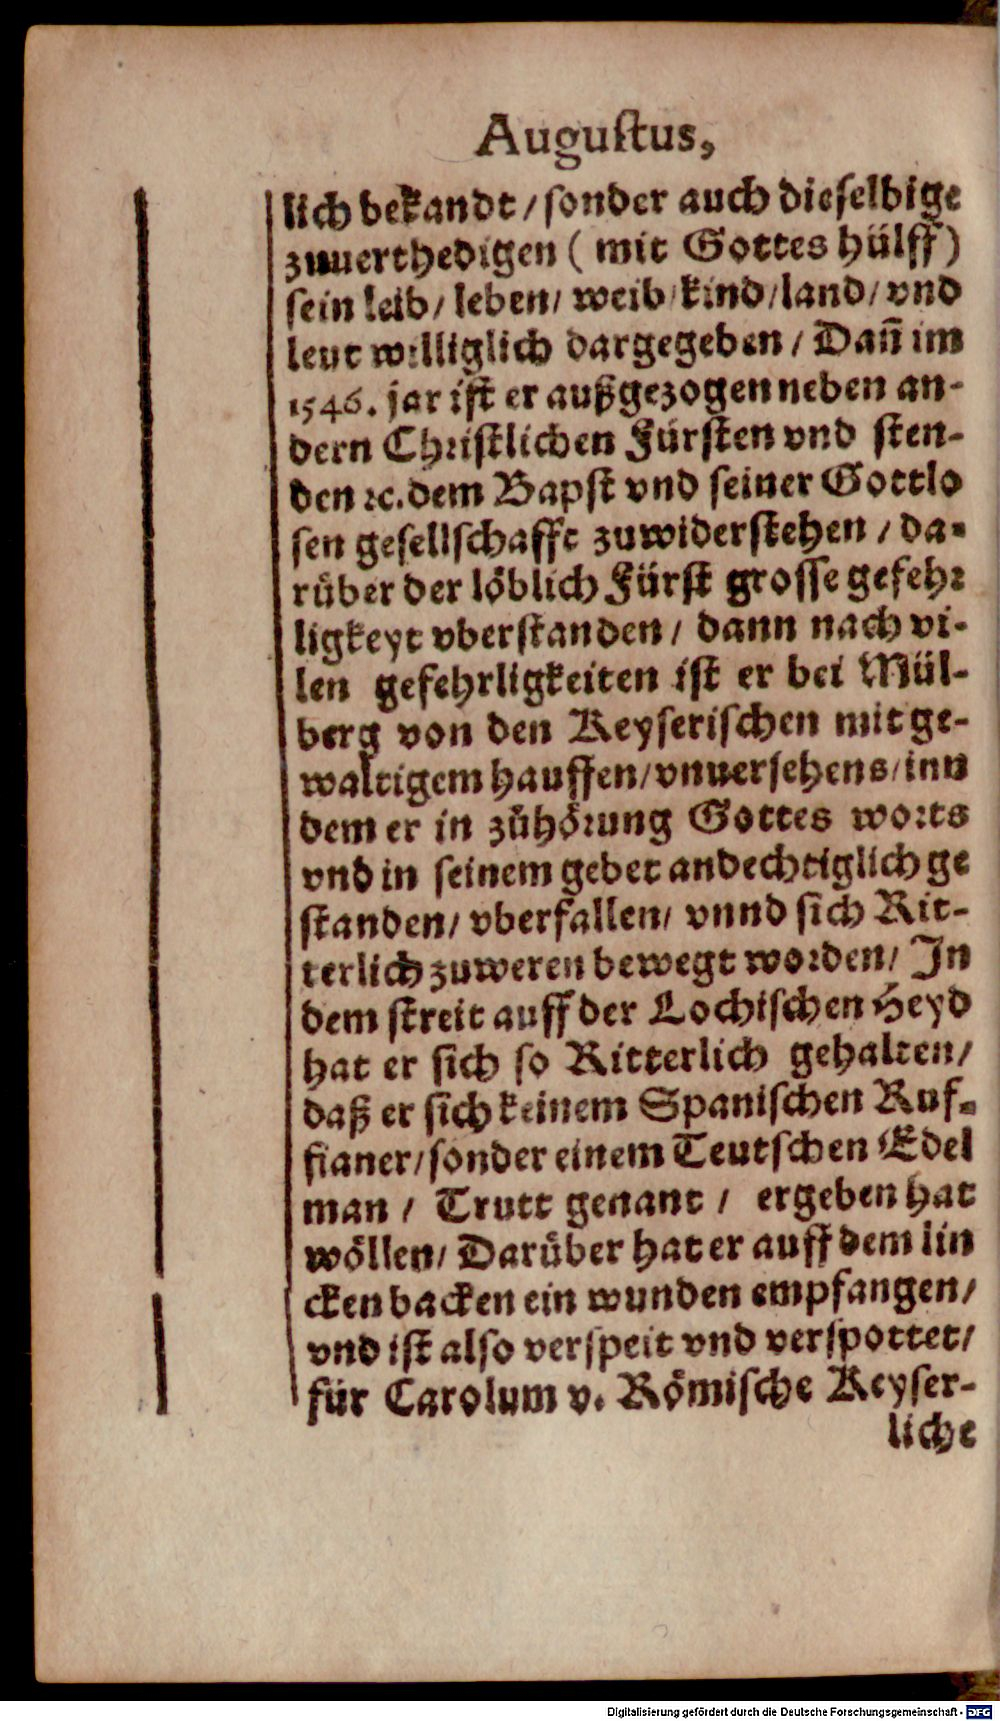 Augustus,
lich bekandt / sonder auch dieselbige
zuuerthedigen ( mit Gottes hülff )
sein leib / leben / weib / kind / land / vnd
leut williglich dargegeben / Dañ im
1546. jar ist er außgezogen neben an-
dern Christlichen Fürsten vnd sten-
den ꝛc. dem Bapst vnd seiner Gottlo
sen gesellschafft zuwiderstehen / da-
rüber der löblich Fürst grosse gefehr
ligkeyt vberstanden / dann nach vi-
len gefehrligkeiten ist er bei Mül-
berg von den Keyserischen mit ge-
waltigem hauffen / vnuersehens / inn
dem er in zůhörung Gottes worts
vnd in seinem gebet andechtiglich ge
standen / vberfallen / vnnd sich Rit-
terlich zuweren bewegt worden / In
dem streit auff der Lochischen Heyd
hat er sich so Ritterlich gehalten /
daß er sich keinem Spanischen Ruf-
fianer / sonder einem Teutschen Edel
man / Trutt genant / ergeben hat
wöllen / Darüber hat er auff dem lin
cken backen ein wunden empfangen /
vnd ist also verspeit vnd verspottet /
für Carolum v. Römische Keyser-
liche
Digitalisierung gefördert durch die Deutsche Forschungsgemeinschaft - DFG